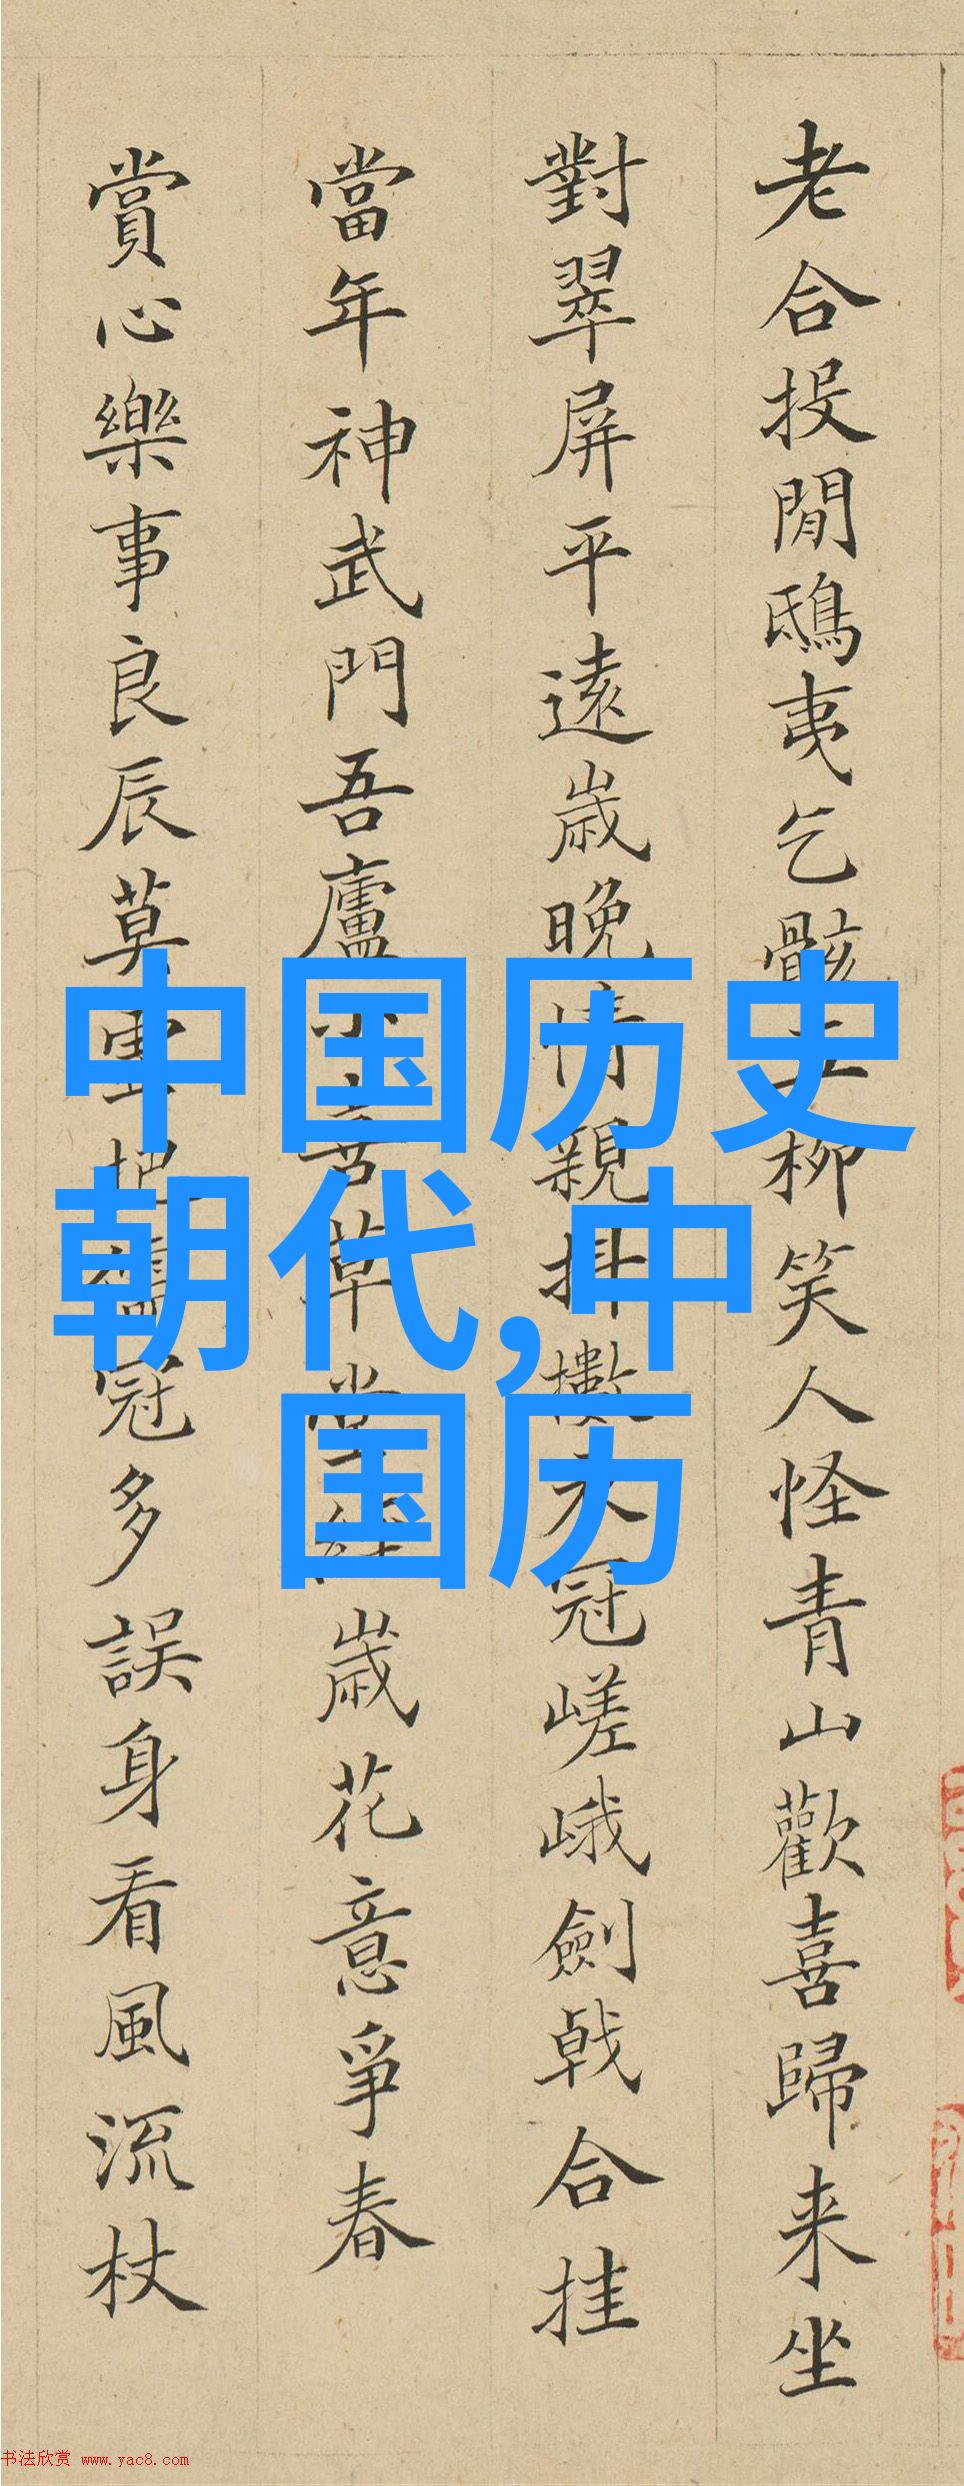 老合投閒鴟夷乞骸五柳笑人怪青山歡喜歸来坐
對翠屏平遠歲晚情親抖擻衣冠嵯峨劍戟合挂
當年神武門吾廬草堂歲花意爭春
賞心樂事良辰莫把冠多誤身看風流杖
中国历史
朝代,中
国历
书法欣赏 www.yac8.com